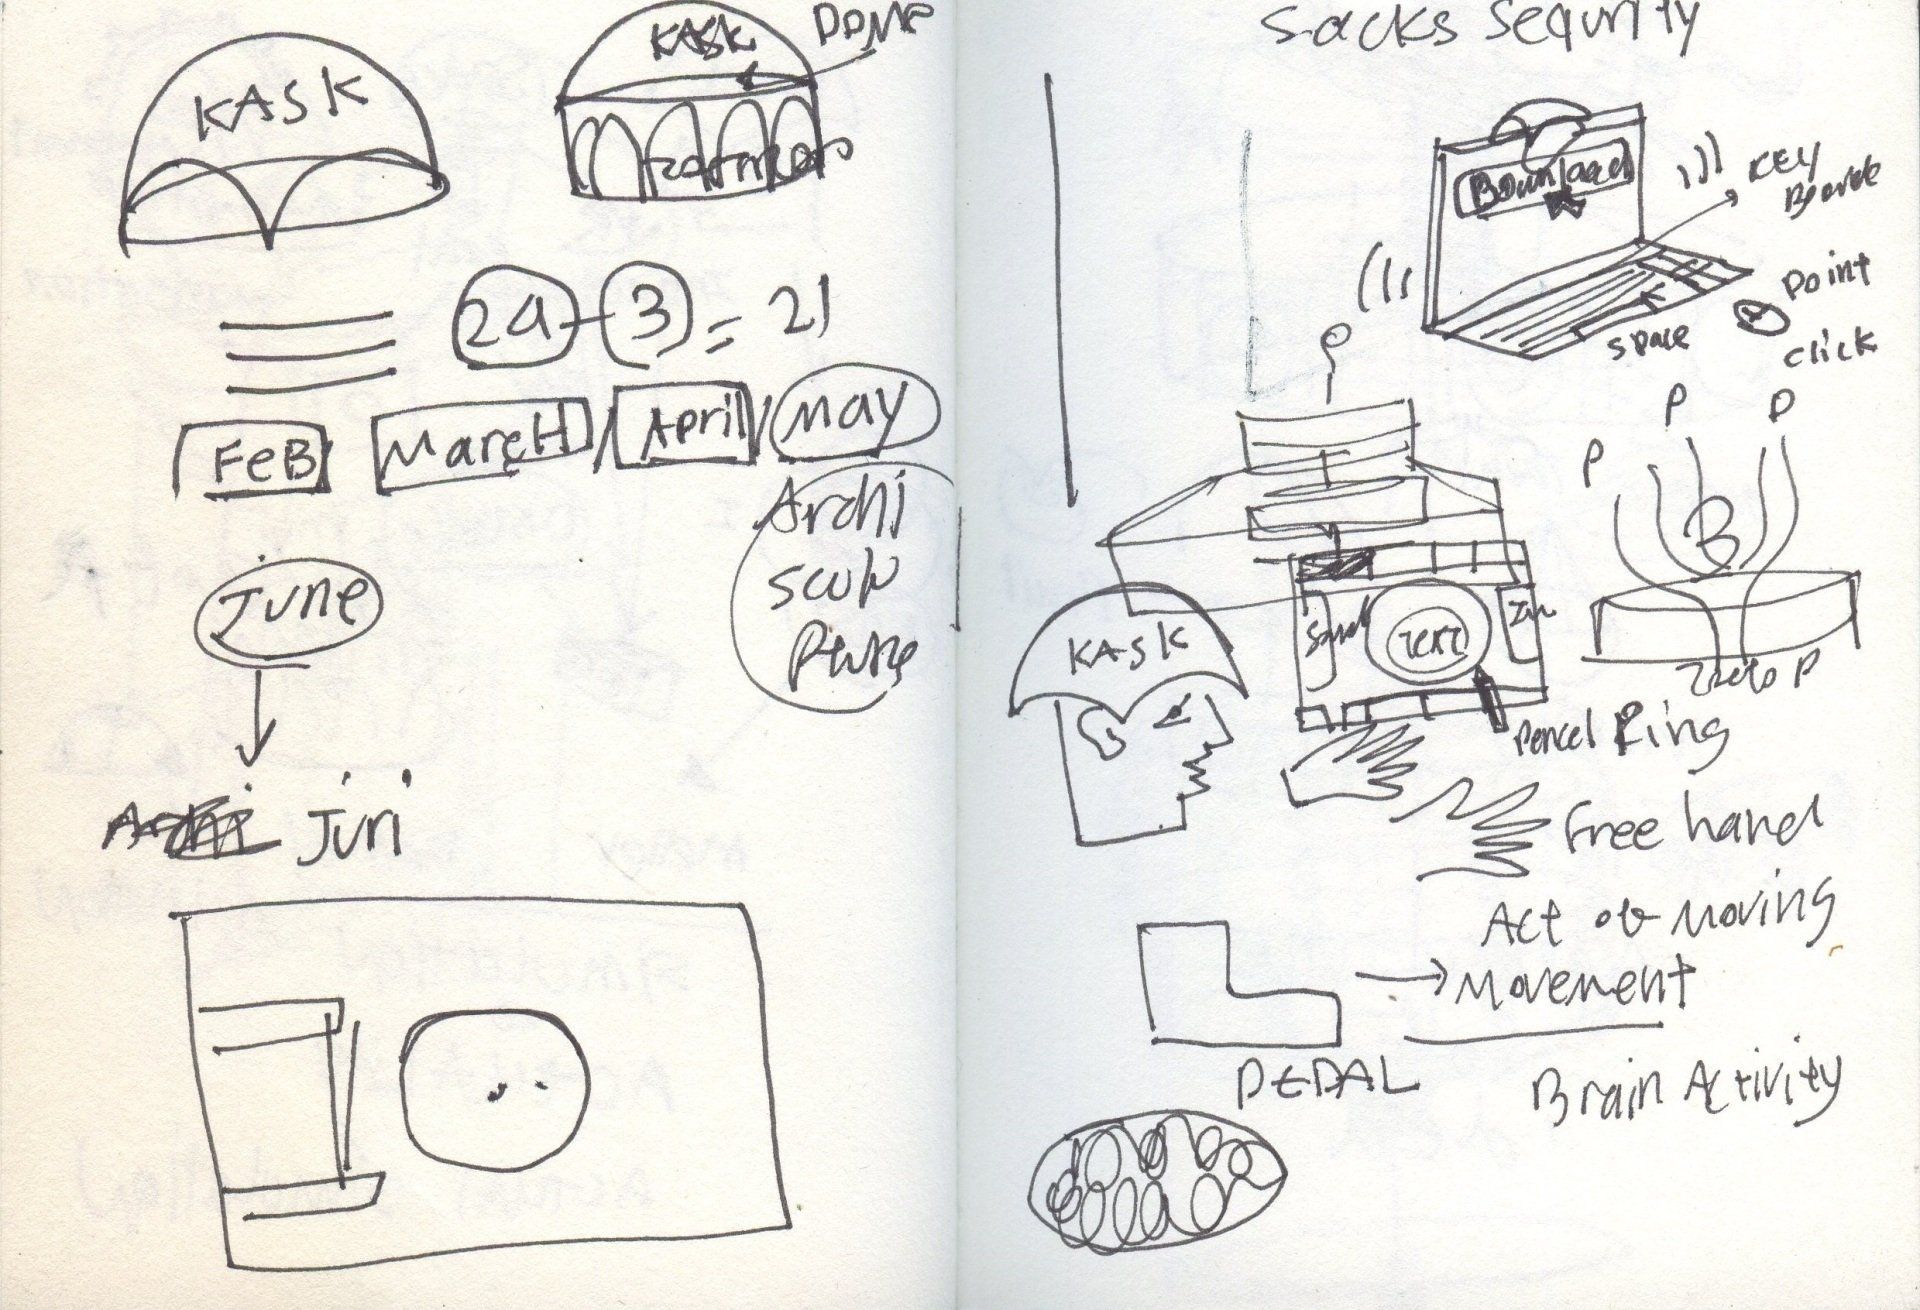 KASK
KASK
DOME
24 - 3 = 21
FeB
MarcH
April
May
Archi
june
Juri
Sacks Sequrity
Download
KEY
Boarde
Point
click
space
P
P
P
B
KASK
TEXT
Pencel Ring
Free hand
Act of Moving
Movement
PEDAL
Brain Activity